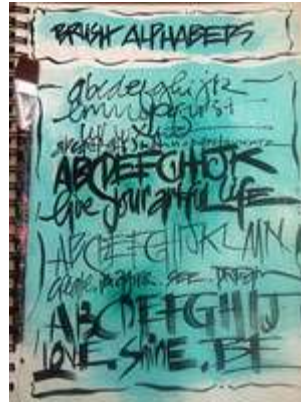 BRUSH ALPHABETS
abcdefghijk
lmnopqrst
uvwxyz
ABCDEFGHIJK
live your artful life
ABCDEFGHIJKLMN
create. imagine. see. dream
ABCDEFGHIJ
LOVE. Shine. BE